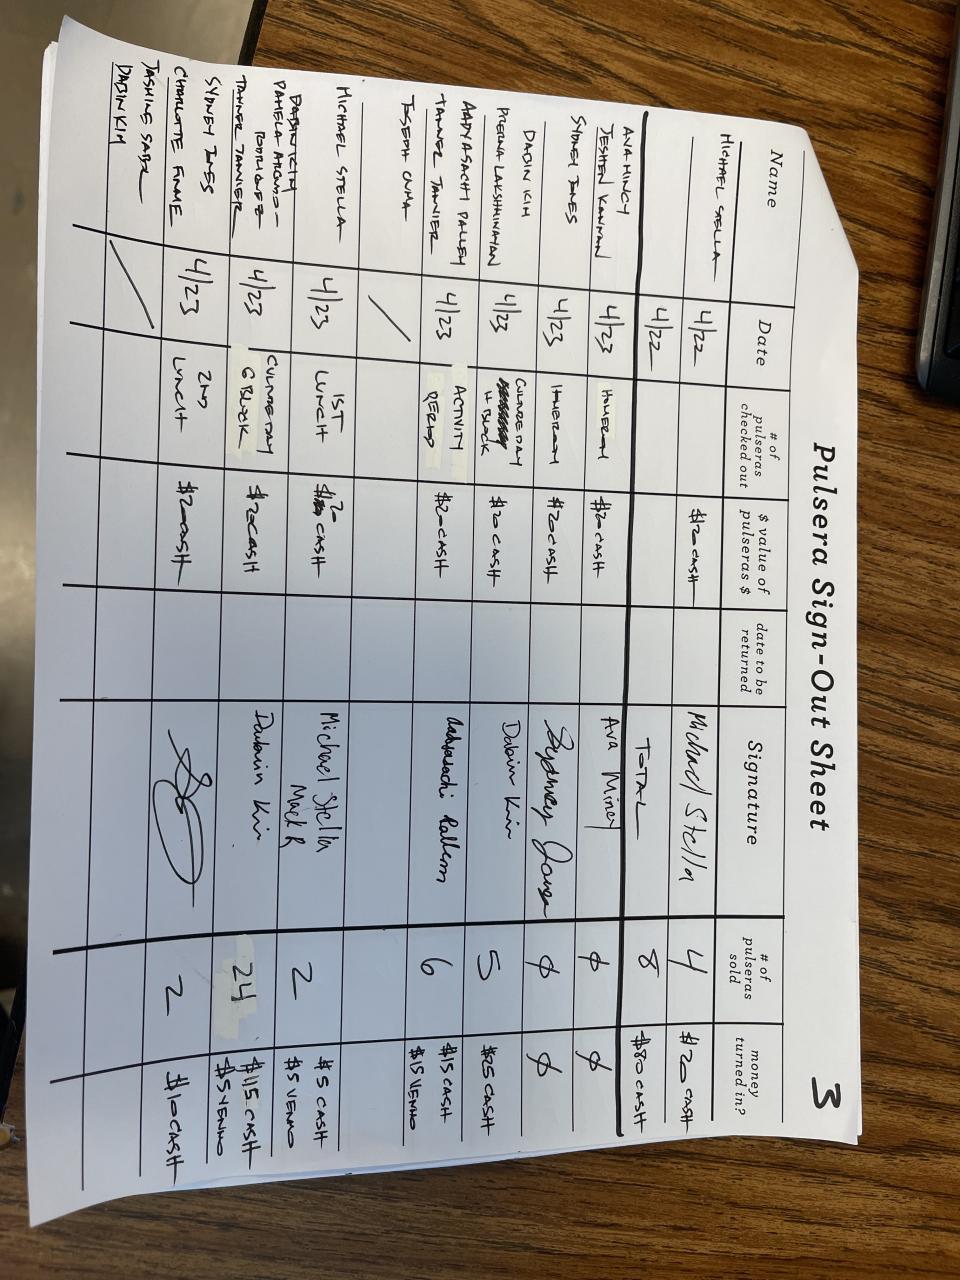 Pulsera Sign-Out Sheet
3
Name
Date
# of
pulseras
checked out
$ value of
pulseras $
date to be
returned
Signature
# of
pulseras
sold
money
turned in?
MICHAEL STELLA
4/22
$120 CASH
Michael Stella
4
$20 CASH
4/22
TOTAL
8
$80 CASH
AVA MINCY
JESHEN KANNAN
4/23
HOMEROOM
$20 CASH
Ava Mincy
∅
∅
SYDNEY JONES
4/23
HOMEROOM
$20 CASH
Sydney Jones
∅
∅
DABIN KIM
PRERNA LAKSHMINAYAN
4/23
CULTURE DAY
H BLOCK
$20 CASH
Dabin Kim
5
$25 CASH
AADYASACHI PALLEM
TANNER TANNIER
4/23
ACTIVITY
PERIOD
$20 CASH
Aadyasachi Pallem
6
$15 CASH
$15 VENMO
JOSEPH
MICHAEL STELLA
4/23
1ST
LUNCH
20
CASH
Michael Stella
Mack R
2
$5 CASH
$5 VENMO
DABIN KIM
PAMELA
RODRIGUEZ
TANNER TANNIER
4/23
CULTURE DAY
G BLOCK
$20 CASH
Dabin Kim
24
$115 CASH
$5 VENMO
SYDNEY JONES
CHARLOTTE FINME
4/23
2ND
LUNCH
$20 CASH
2
$10 CASH
JASMINE
DABIN KIM